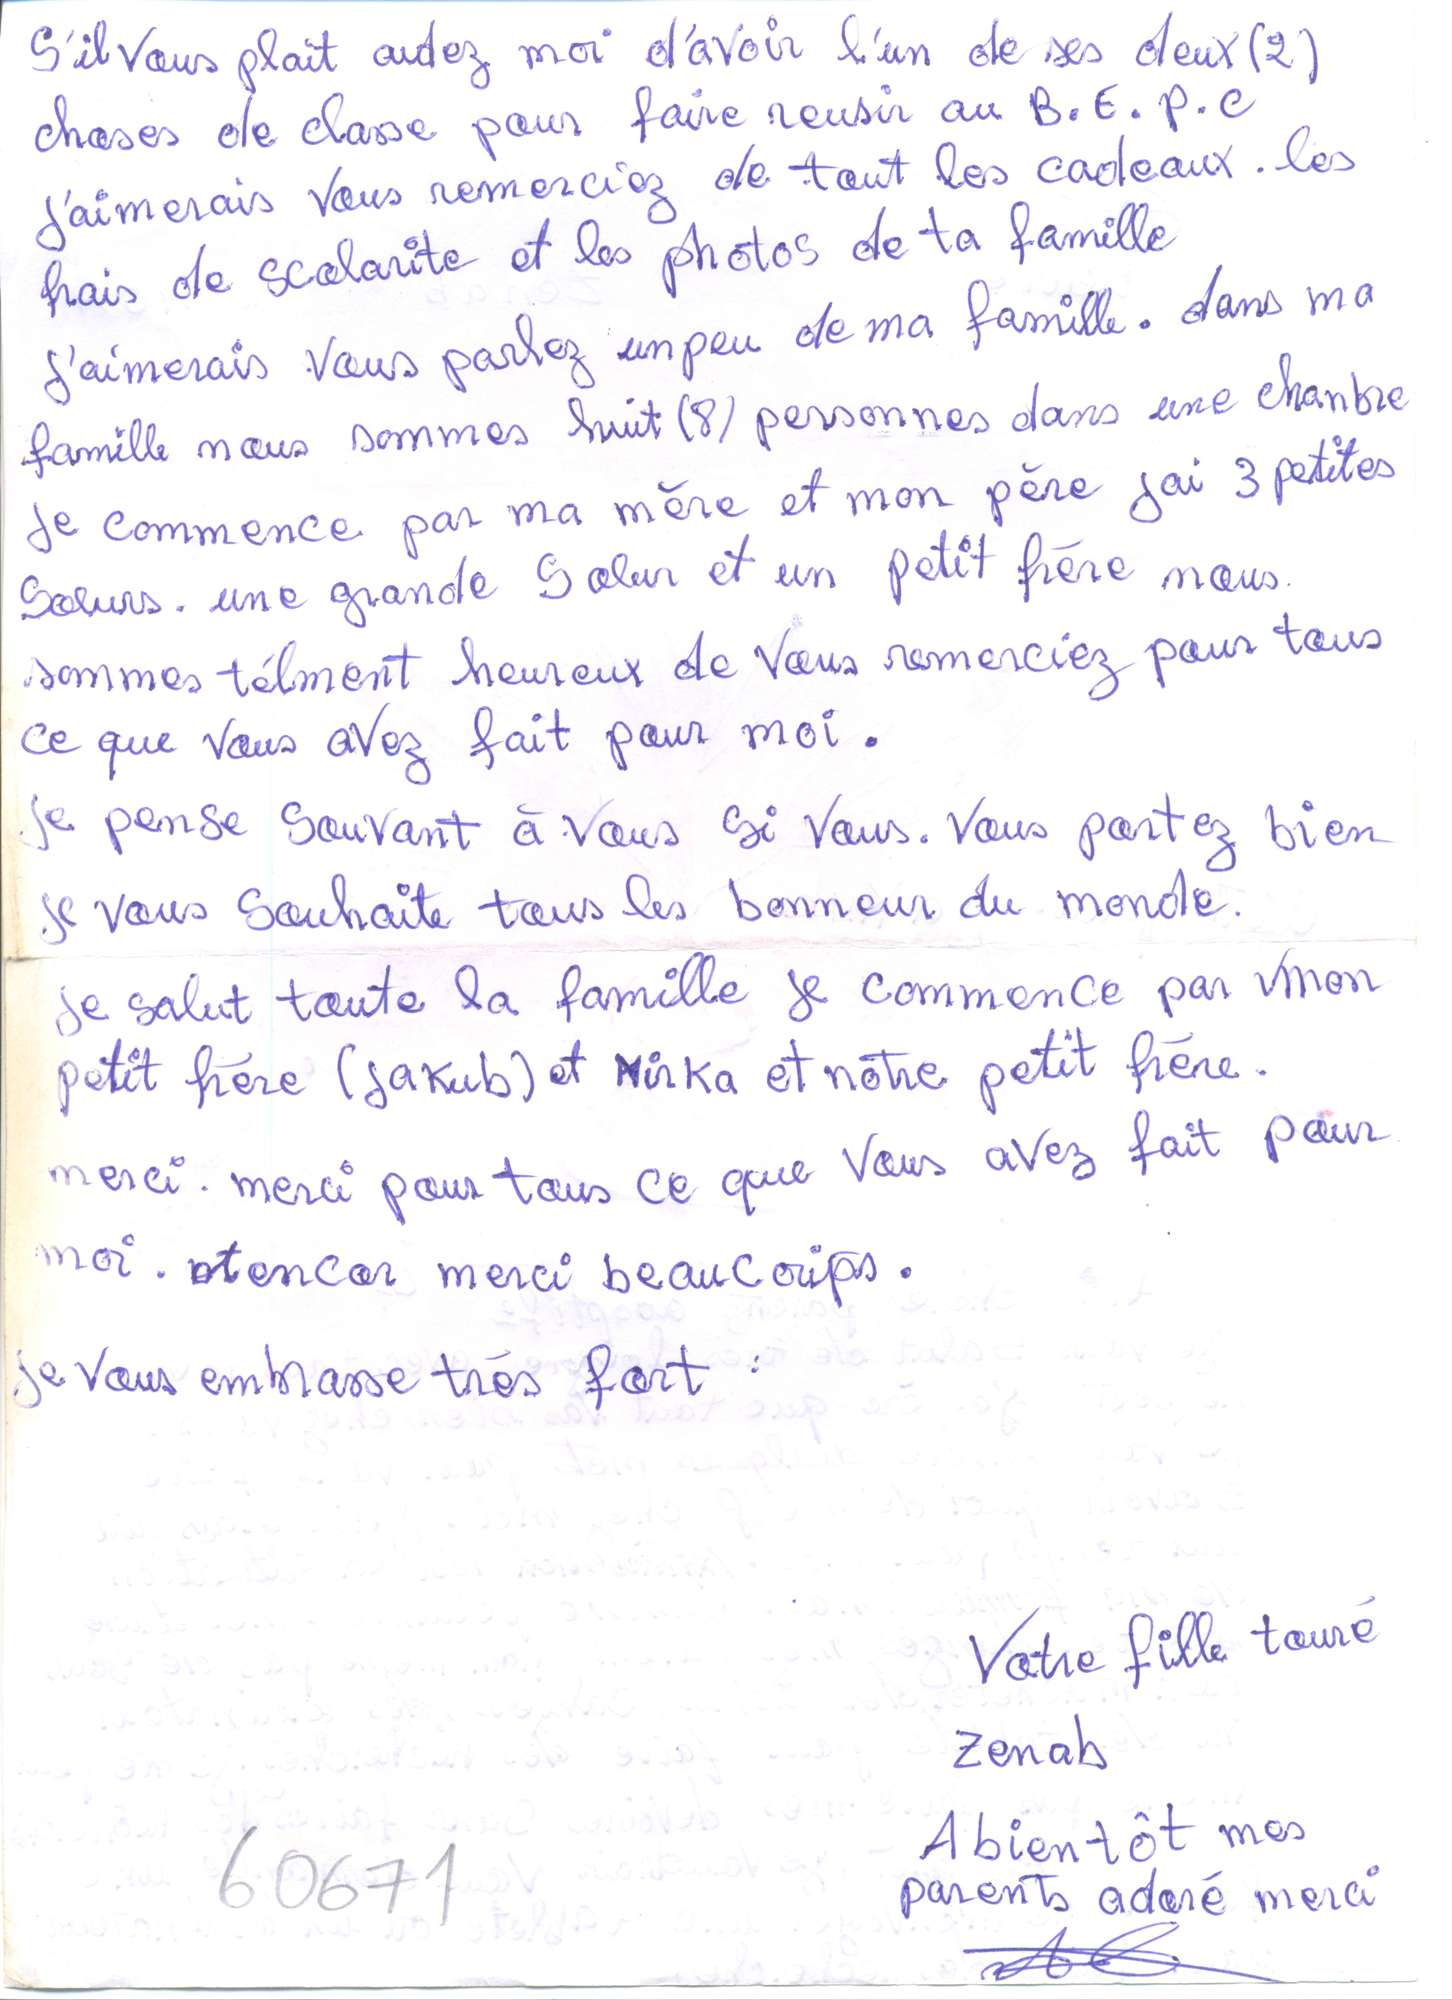 S'il vous plait aidez moi d'avoir l'un de ses deux (2)
choses de classe pour faire reusir au B.E.P.C
j'aimerais vous remerciez de tout les cadeaux. les
frais de scolarite et les photos de ta famille
j'aimerais vous parlez un peu de ma famille. dans ma
famille nous sommes huit (8) personnes dans une chanbre
je commence par ma mère et mon père jai 3 petites
Soeurs. une grande Soeur et un petit frère nous.
sommes télment heureux de vous remerciez pour tous
ce que vous avez fait pour moi.
je pense Souvant à vous Si vous. vous portez bien
je vous Souhaite tous les bonneur du monde.
je salut toute la famille je commence par mon
petit frère (jakub) et Mirka et nôtre petit frère.
merci. merci pour tous ce que vous avez fait pour
moi. et encor merci beaucoups.
je vous embrasse très fort :
Votre fille touré
Zenab
A bientôt mes
parents adoré merci
60671